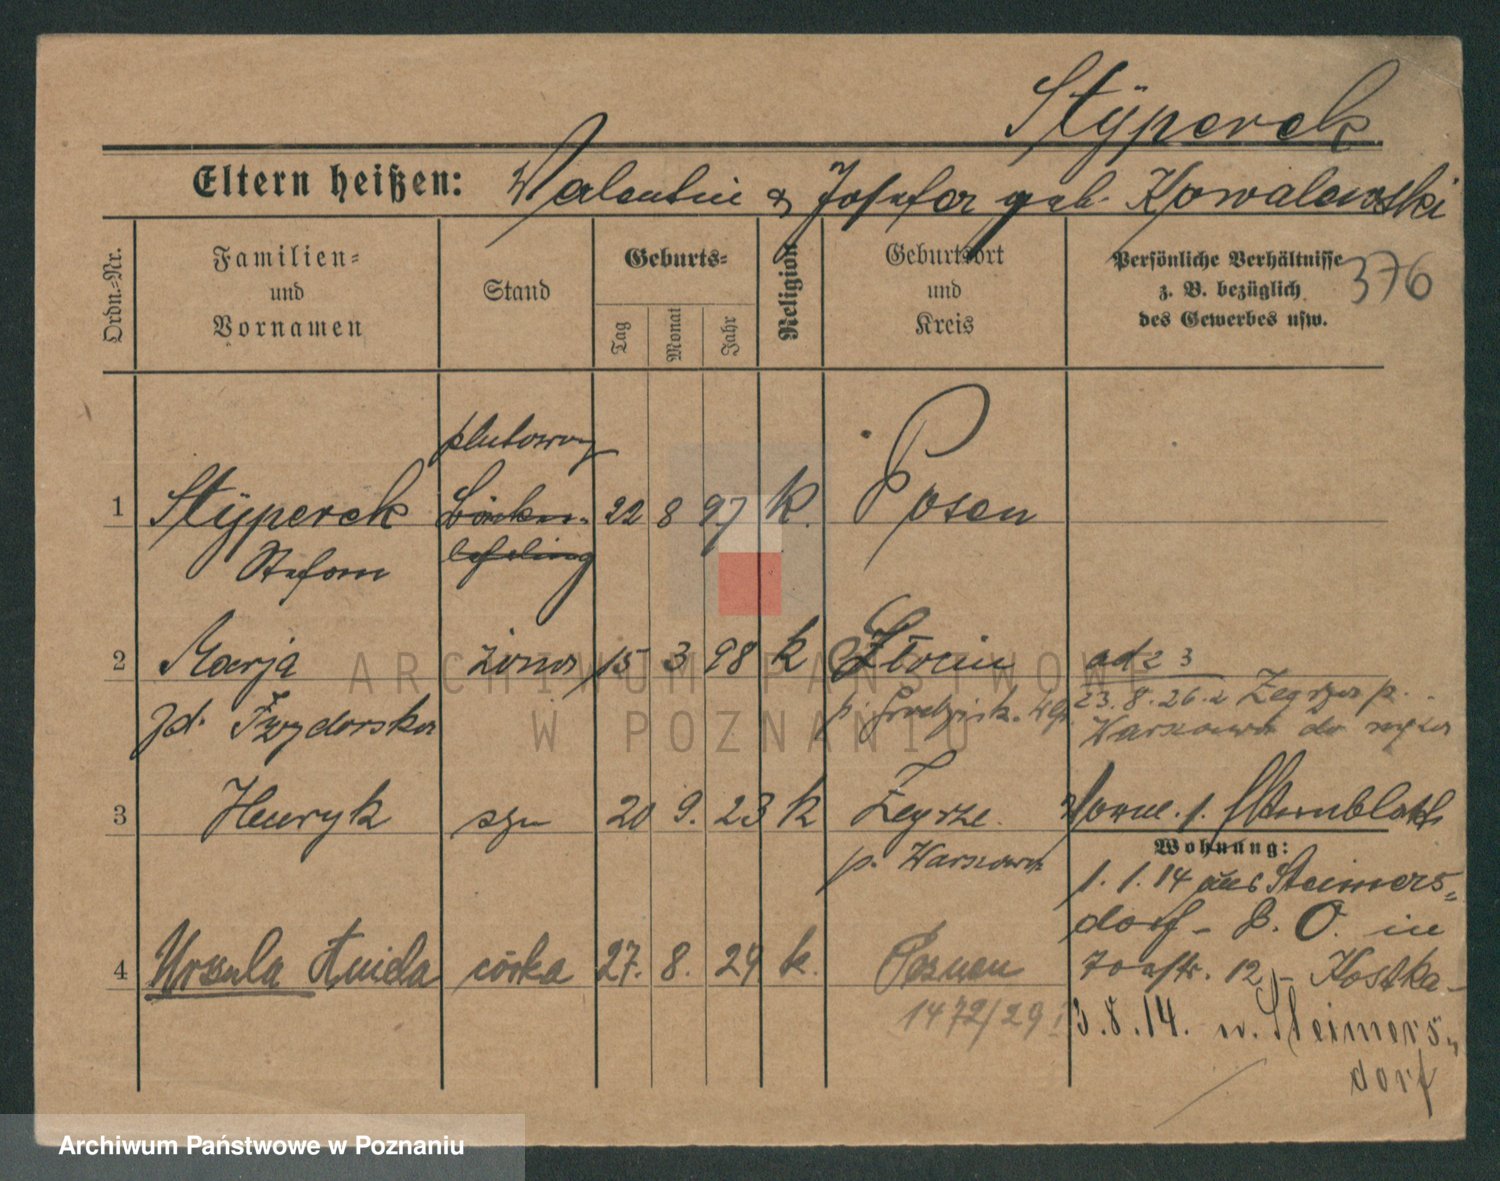 Styperek
Eltern heißen: Valentin & Josefa geb. Kowalewski
Ordn.-Nr.
Familien- und Vornamen
Stand
Geburts-
Tag
Monat
Jahr
Religion
Geburtsort und Kreis
Persönliche Verhältnisse z. B. bezüglich des Gewerbes usw.
376
plutonowy
1 Styperek Bäcker- 22 8 97 k. Posen
Stefan lehrling
2 Marja żona 15 3 98 k
ad 2 3
23.8.26. z Zegrza p.
Warszawa do męża
3 Henryk syn 20 9. 23 k Zegrze
p. Warszawa
Wohnung:
1. 1. 14 aus Steimers-
dorf - B. O. in
4 Urszula córka 27. 8. 29 k. Poznań
12 - Kostka -
1472/29
3.8.14. n. Steimers-
dorf
ARCHIWUM PAŃSTWOWE
W POZNANIU
Archiwum Państwowe w Poznaniu